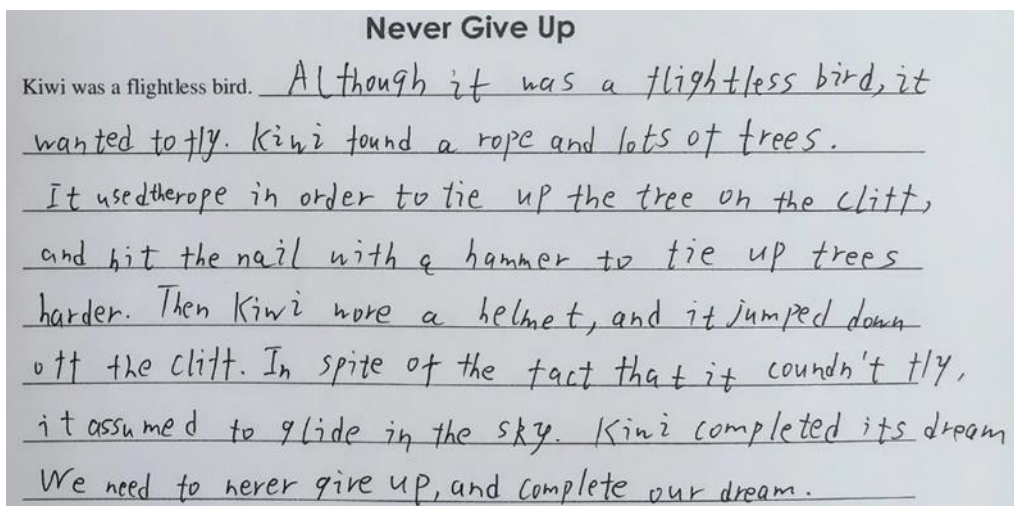 Never Give Up
Kiwi was a flightless bird. Although it was a flightless bird, it
wanted to fly. Kiwi found a rope and lots of trees.
It used the rope in order to tie up the tree on the cliff,
and hit the nail with a hammer to tie up trees
harder. Then Kiwi wore a helmet, and it jumped down
off the cliff. In spite of the fact that it coundn't fly,
it assumed to glide in the sky. Kiwi completed its dream
We need to never give up, and complete our dream.